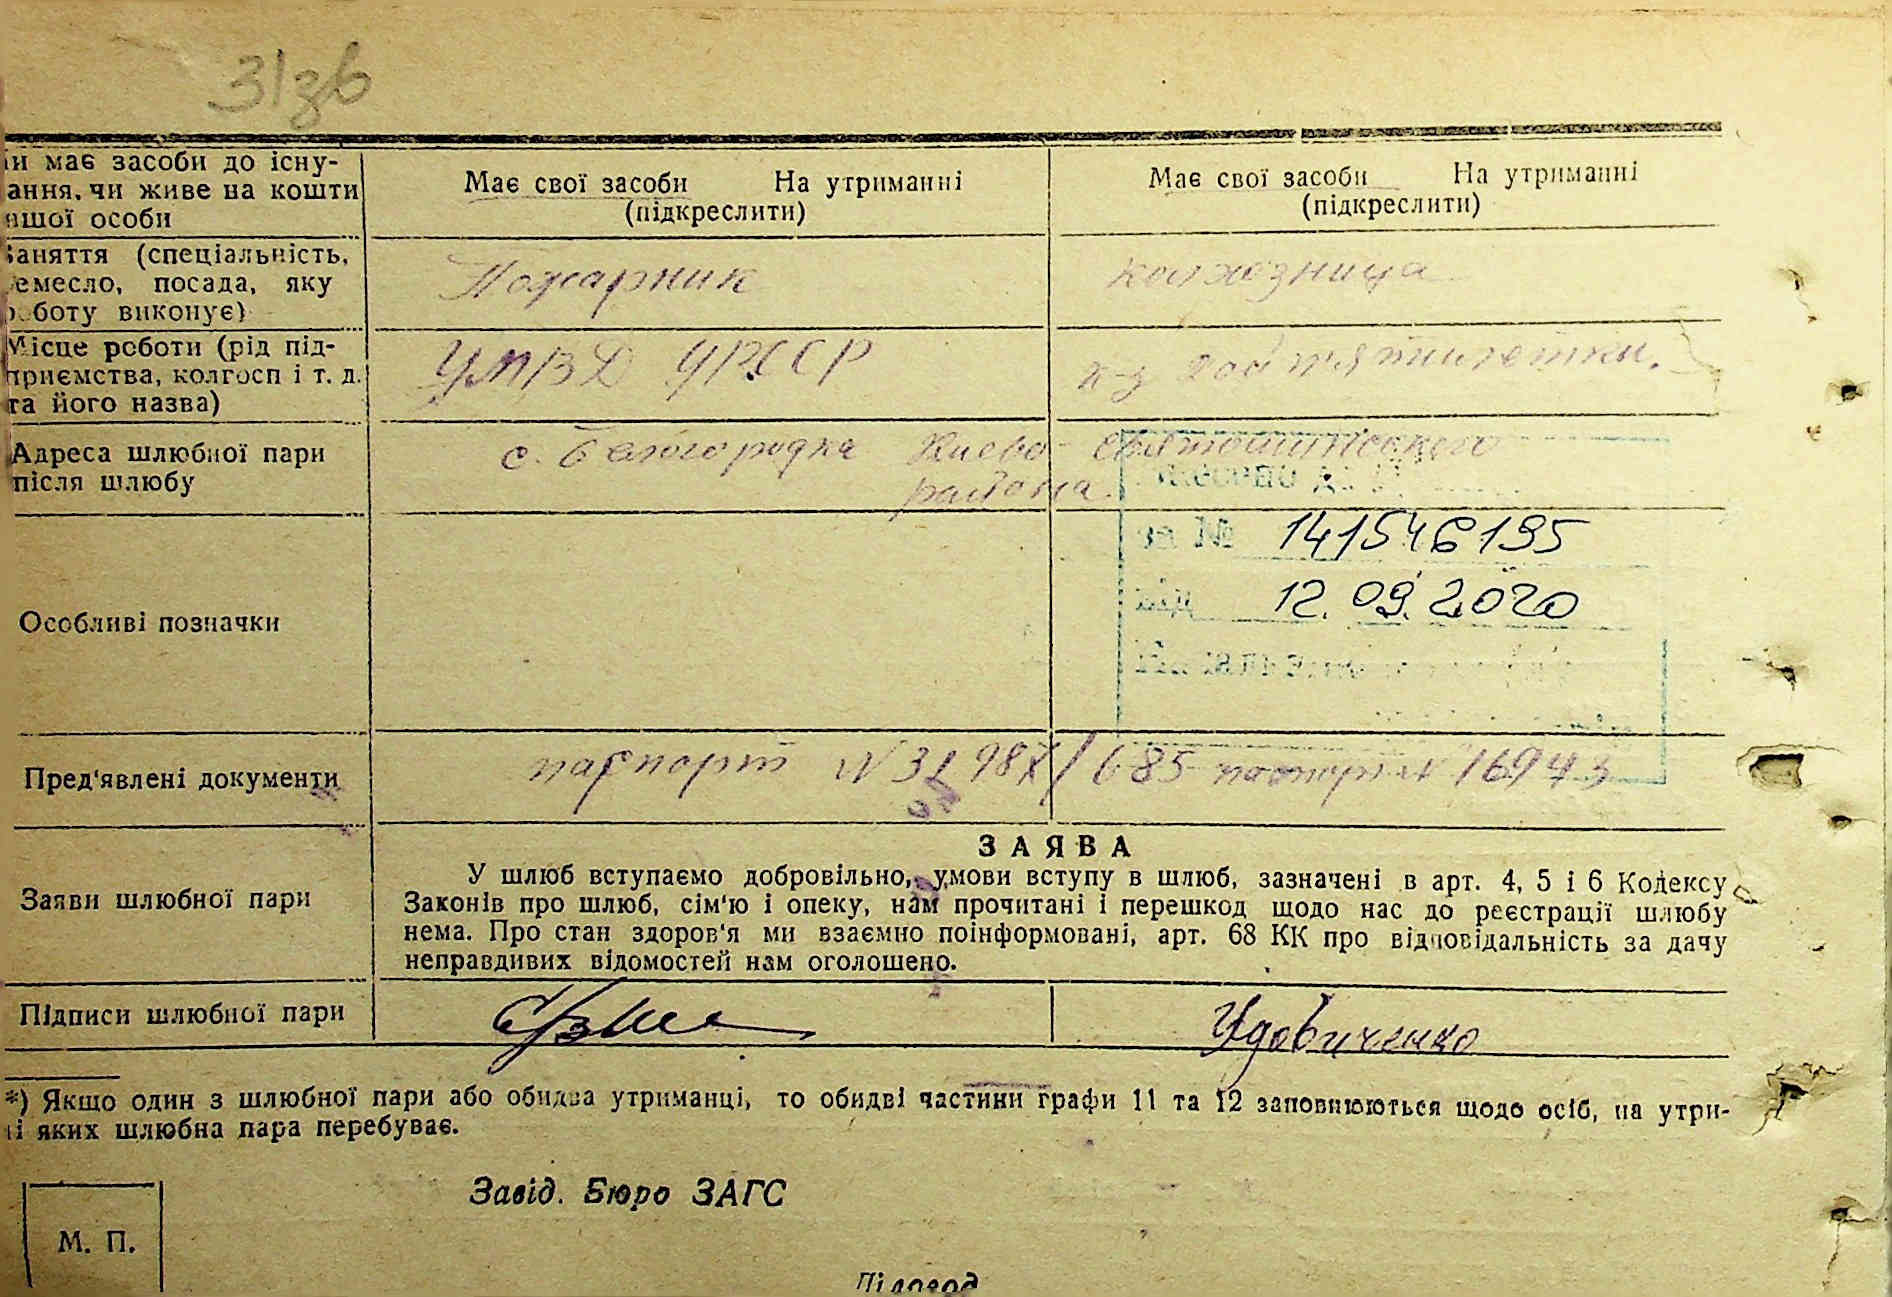 31зв
ти має засоби до існу-
ання, чи живе на кошти
ншої особи
Має свої засоби На утриманні
(підкреслити)
Має свої засоби На утриманні
(підкреслити)
Заняття (спеціальність,
ремесло, посада, яку
роботу виконує)
Пожарник
колхозница
Місце роботи (рід під-
приємства, колгосп і т. д.
та його назва)
УМВД УРССР
к-з 2ой пятилетки.
Адреса шлюбної пари
після шлюбу
с. Белогородка Киево-Святошинского
района.
Особливі позначки
141546195
від 12.09.2020
Пред'явлені документи
паспорт N 685 паспорт N 16943
Заяви шлюбної пари
ЗАЯВА
У шлюб вступаємо добровільно, умови вступу в шлюб, зазначені в арт. 4, 5 і 6 Кодексу
Законів про шлюб, сім'ю і опеку, нам прочитані і перешкод щодо нас до реєстрації шлюбу
нема. Про стан здоров'я ми взаємно поінформовані, арт. 68 КК про відповідальність за дачу
неправдивих відомостей нам оголошено.
Підписи шлюбної пари
Удовиченко
*) Якщо один з шлюбної пари або обидва утриманці, то обидві частини графи 11 та 12 заповнюються щодо осіб, на утри-
ні яких шлюбна пара перебуває.
Завід. Бюро ЗАГС
М. П.
Діловод